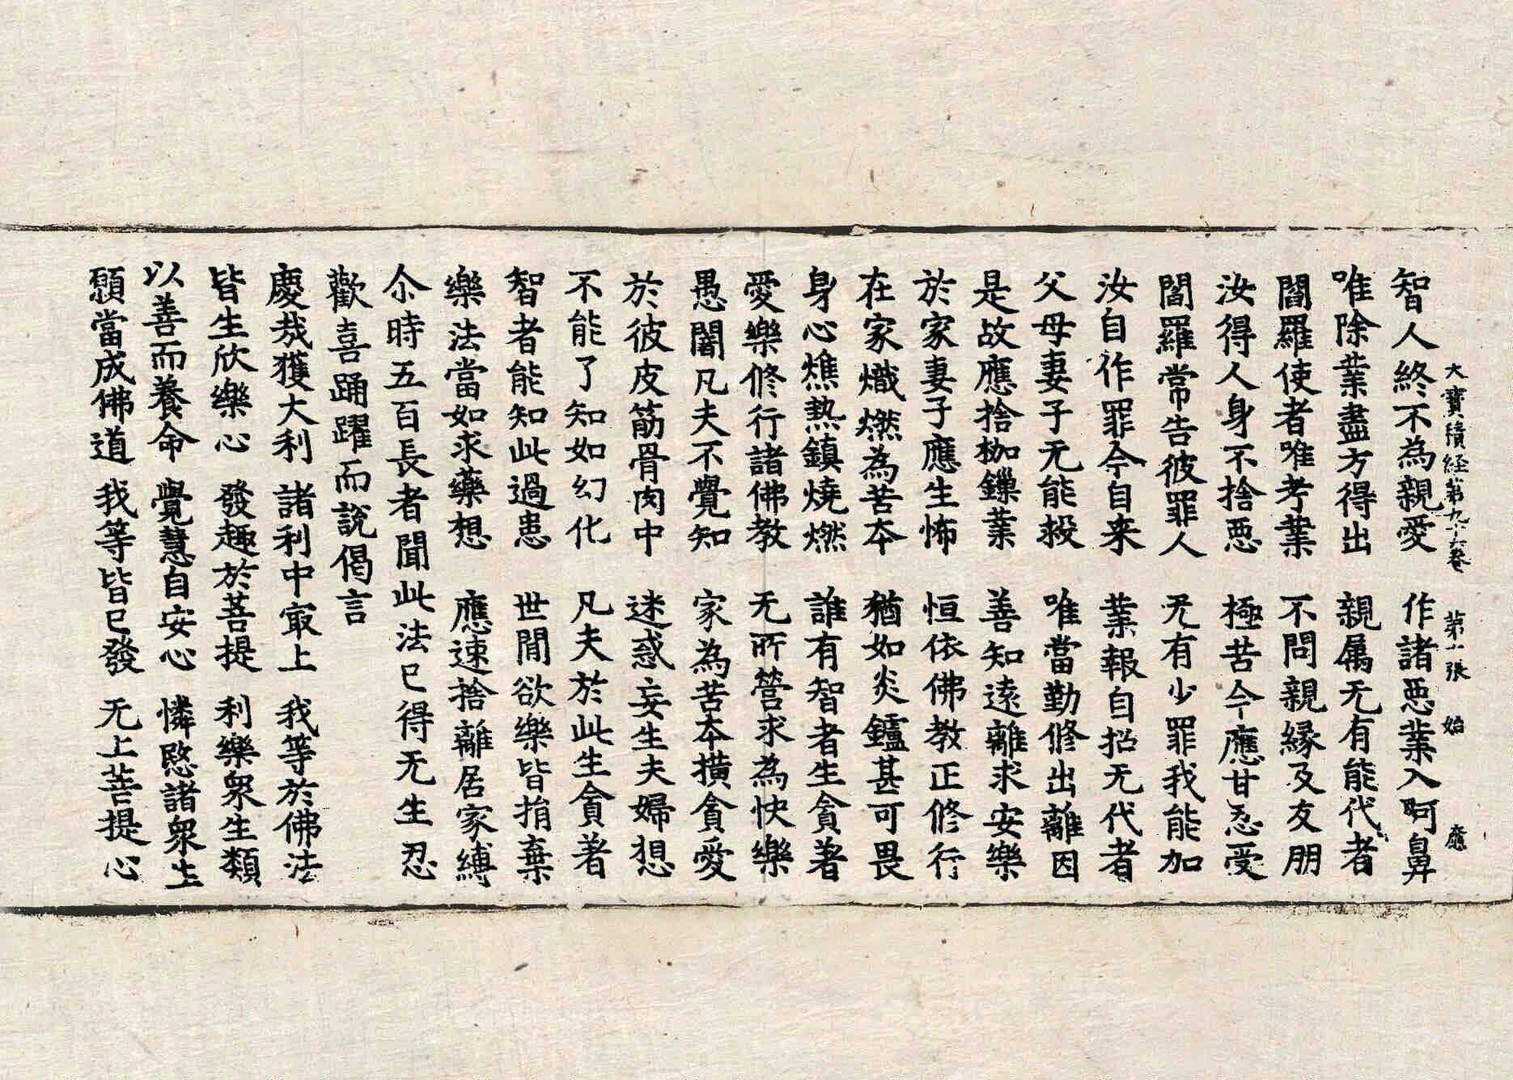 大寶積經第九十六卷 第十張 始 應
智人終不為親愛 作諸惡業入阿鼻
唯除業盡方得出 親属无有能代者
閻羅使者唯考業 不問親緣及友朋
汝得人身不捨惡 極苦今應甘忍受
閻羅常告彼罪人 无有少罪我能加
汝自作罪今自来 業報自招无代者
父母妻子无能救 唯當勤修出離因
是故應捨枷鏁業 善知遠離求安樂
於家妻子應生怖 恒依佛教正修行
在家熾燃為苦夲 猶如炎鑪甚可畏
身心燋熱鎮燒燃 誰有智者生貪著
愛樂修行諸佛教 无所營求為快樂
愚闇凡夫不覺知 家為苦夲橫貪愛
於彼皮筋骨肉中 迷惑妄生夫婦想
不能了知如幻化 凡夫於此生貪著
智者能知此過患 世間欲樂皆捐棄
樂法當如求藥想 應速捨離居家縛
尒時五百長者聞此法已得无生忍
歡喜踊躍而說偈言
慶哉獲大利 諸利中㝡上 我等於佛法
皆生欣樂心 發趣於菩提 利樂衆生類
以善而養命 覺慧自安心 憐愍諸衆生
願當成佛道 我等皆已發 无上菩提心